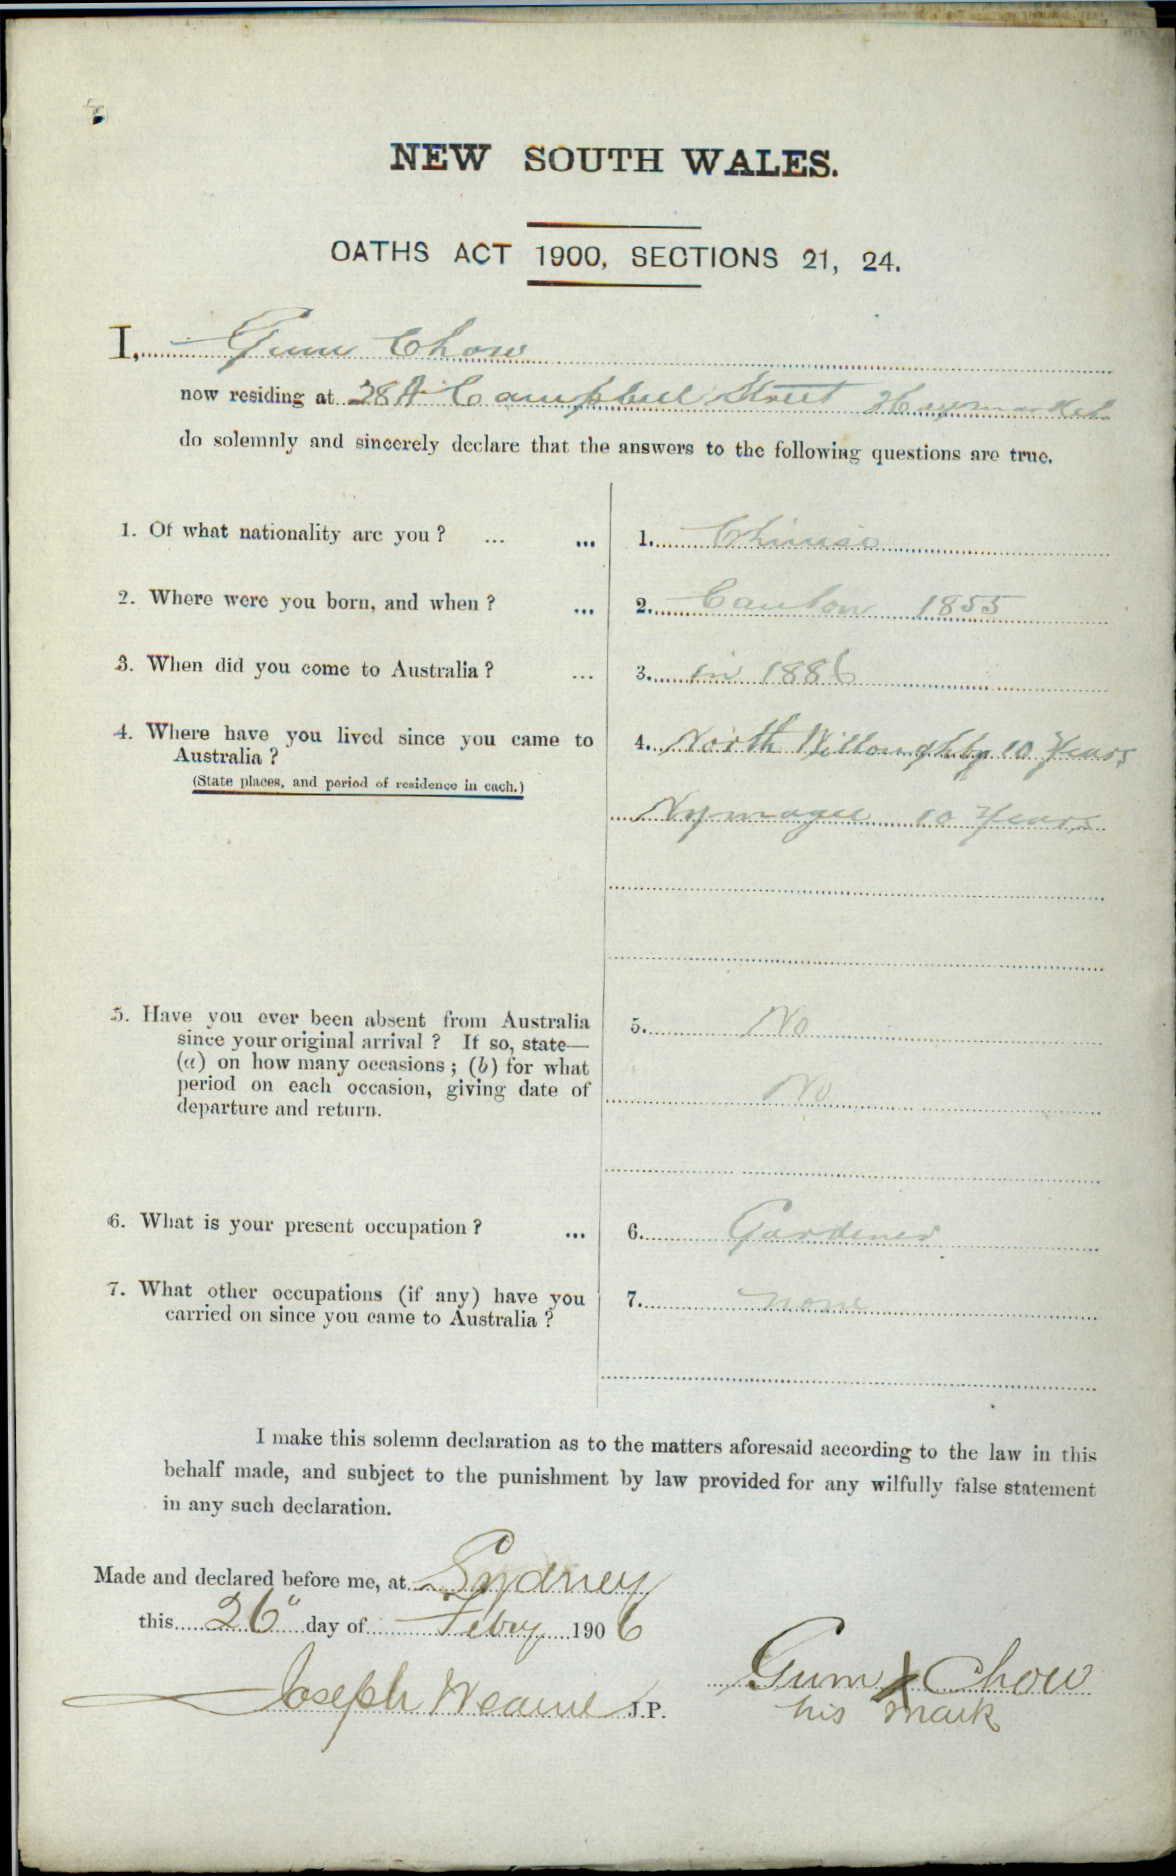 NEW SOUTH WALES.
OATHS ACT 1900, SECTIONS 21, 24.
I, Gum Chow
now residing at 28A Campbell Street Haymarket
do solemnly and sincerely declare that the answers to the following questions are true.
1. Of what nationality are you ? ... ... 1. Chinese
2. Where were you born, and when ? ... 2. Canton 1855
3. When did you come to Australia ? ... 3. in 1886
4. Where have you lived since you came to 4. North Willoughby 10 Years
Australia ?
(State places, and period of residence in each.)
Nymagee 10 Years
5. Have you ever been absent from Australia 5. No
since your original arrival ? If so, state—
(a) on how many occasions ; (b) for what
period on each occasion, giving date of No
departure and return.
6. What is your present occupation ? ... 6. Gardener
7. What other occupations (if any) have you 7. none
carried on since you came to Australia ?
I make this solemn declaration as to the matters aforesaid according to the law in this
behalf made, and subject to the punishment by law provided for any wilfully false statement
in any such declaration.
Made and declared before me, at Sydney
this 26" day of Febry 1906
Gum X Chow
Joseph Wearne J.P.
his mark